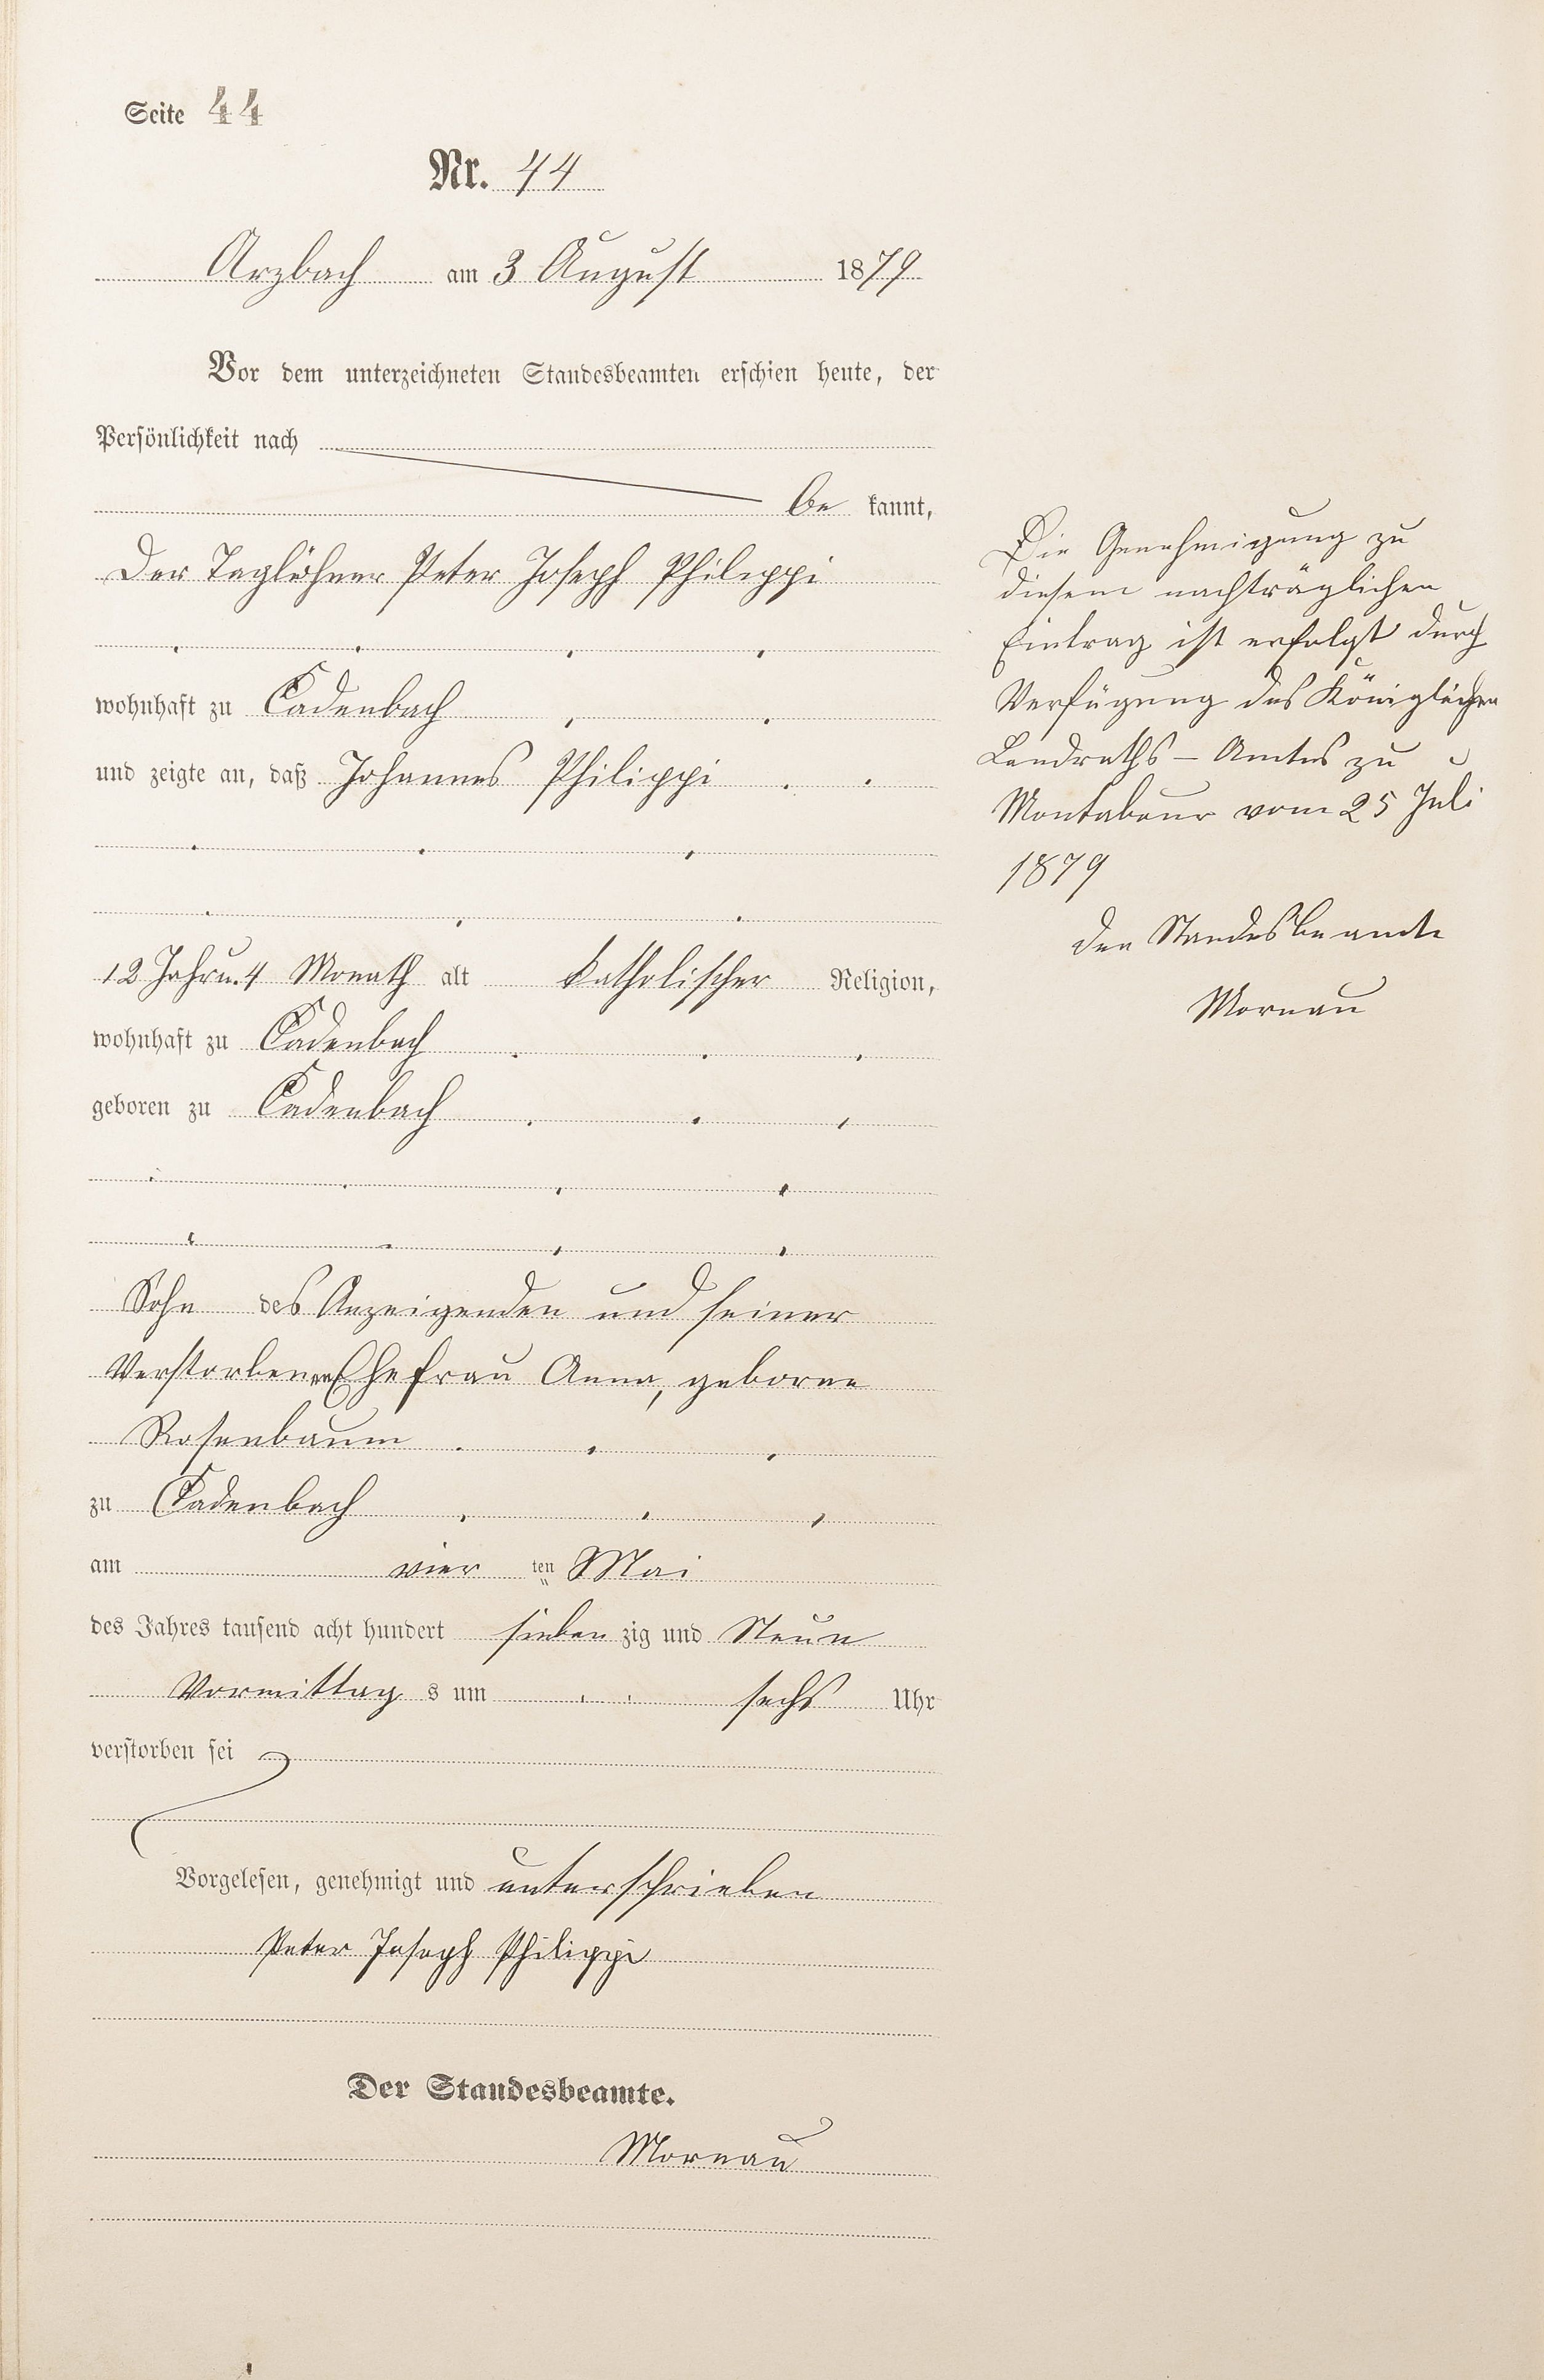 Seite 44
Nr. 44
Arzbach am 3 August 1879
Vor dem unterzeichneten Standesbeamten erschien heute, der
Persönlichkeit nach
be kannt,
Der Taglöhner Peter Joseph Philippi
wohnhaft zu Cadenbach
und zeigte an, daß Johannes Philippi
12 Jahr u. 4 Monath alt katholischer Religion,
wohnhaft zu Cadenbach
geboren zu Cadenbach
Sohn des Anzeigenden und seiner
Verstorbenen Ehefrau Anna, geborne
Rosenbaum
zu Cadenbach
am vier ten Mai
des Jahres tausend acht hundert sieben zig und Neun
Vormittag s um sechs Uhr
verstorben sei
Vorgelesen, genehmigt und unterschrieben
Peter Joseph Philippi
Der Standesbeamte.
Mornau
Die Genehmigung zu
diesem nachträglichen
Eintrag ist erfolgt durch
Verfügung des Königlichen
Landraths - Amtes zu
Montabaur vom 25 Juli
1879
Der Standesbeamte
Mornau